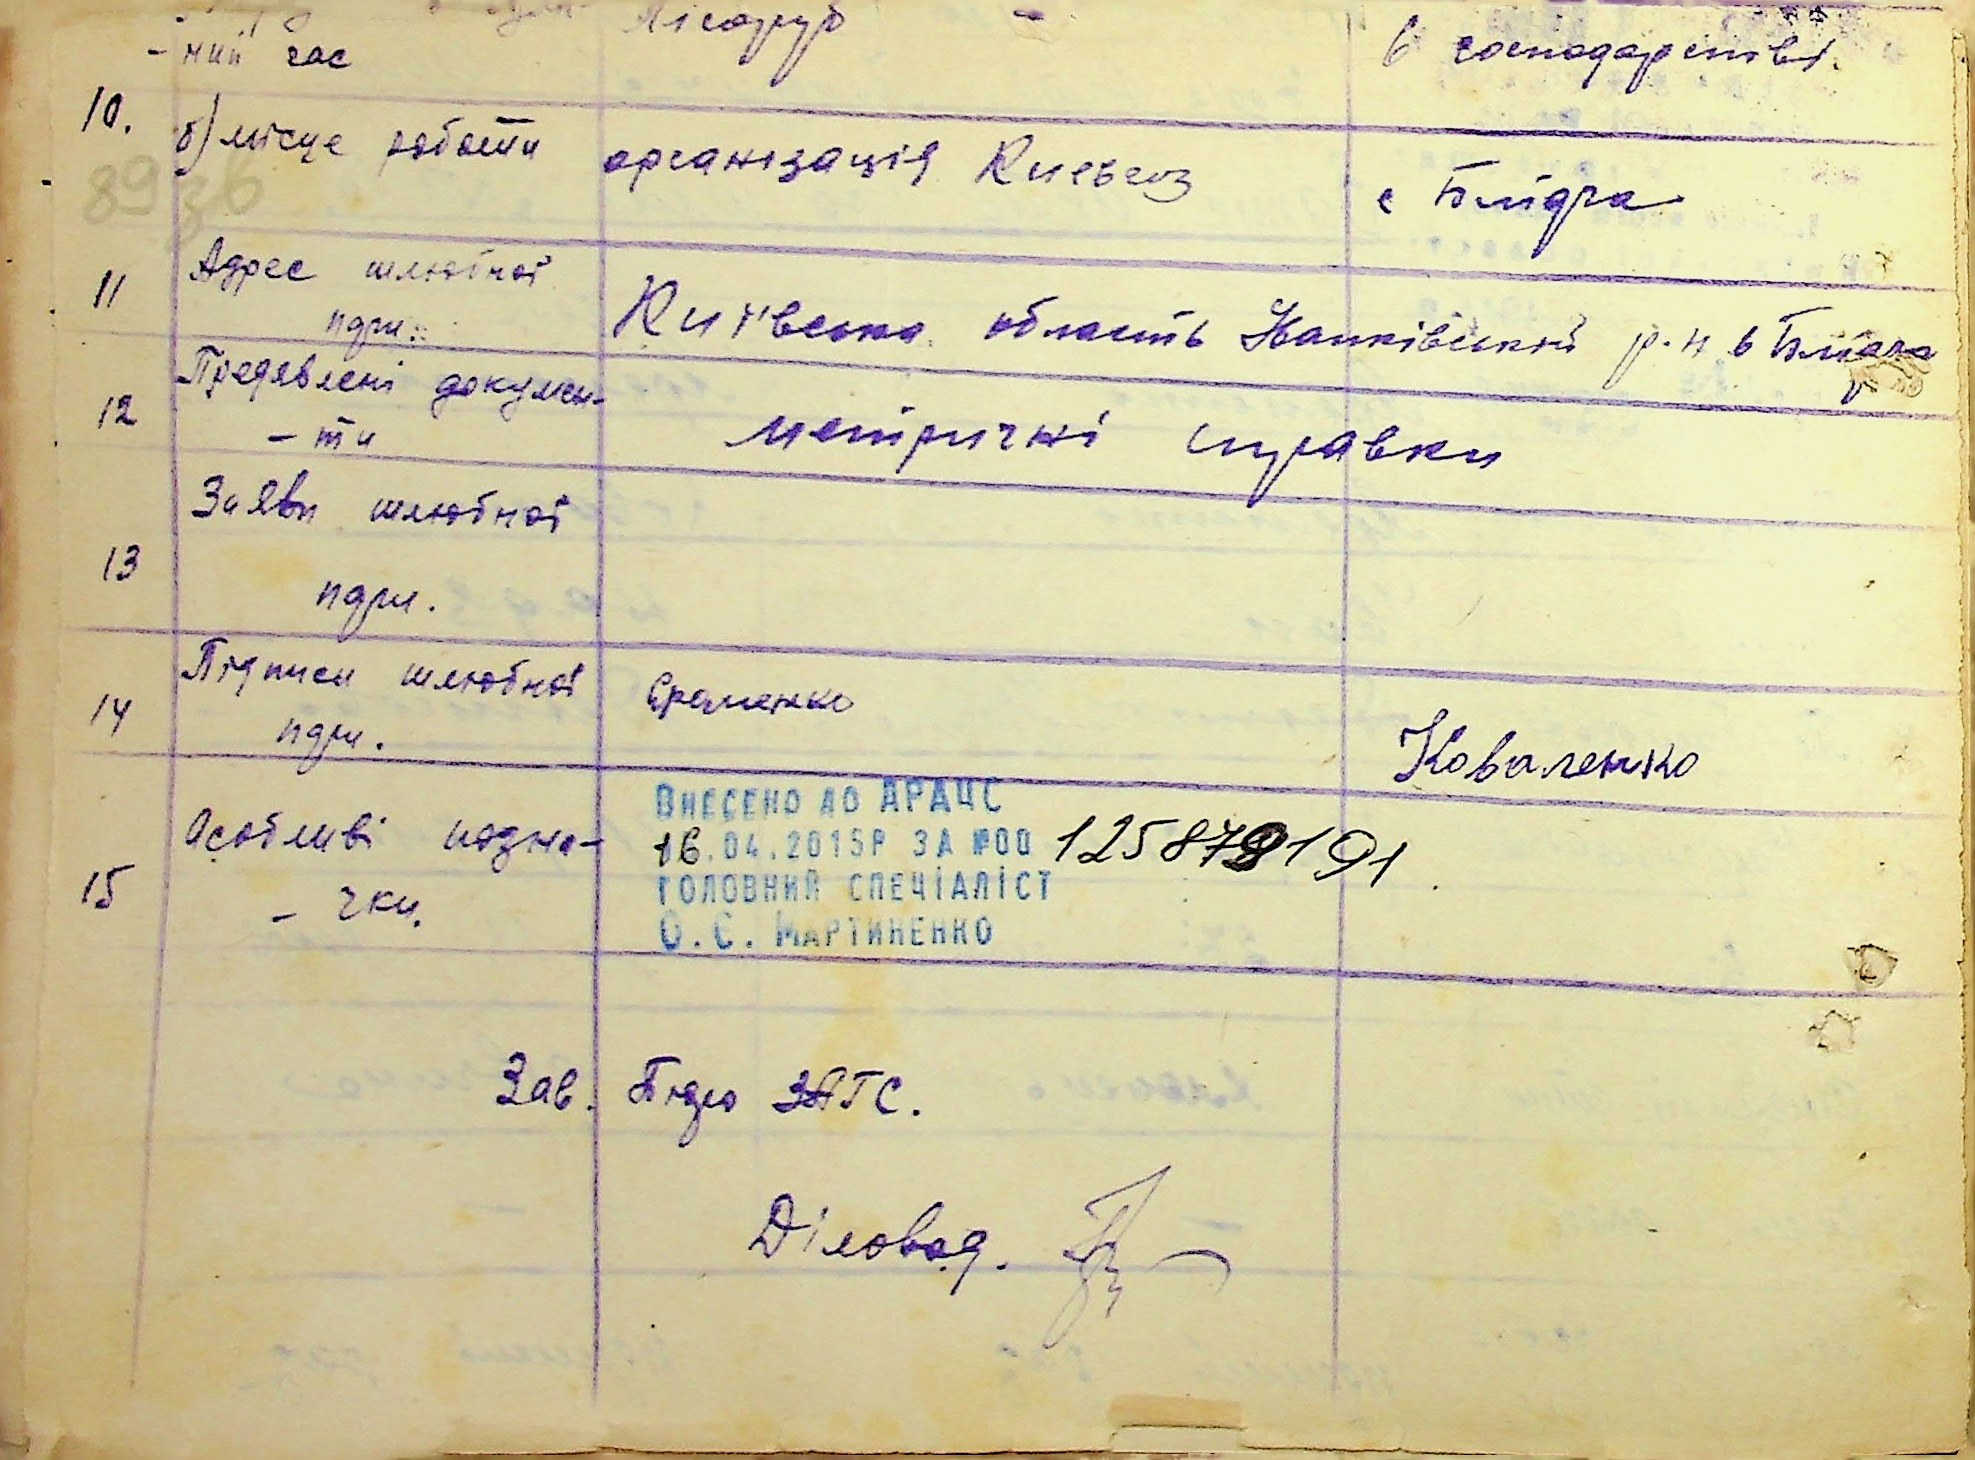 Лісоруб
в господарстві.
- ний час
10. б) місце роботи організація Києвгоз с Блідча
89 зв
11 Адрес шлюбної
пари: Київська область Іванківський р-н в Блідча
12 Предявлені докумен-
- ти метричні справки
13 Заяви шлюбної
пари.
14 Підписи шлюбної Єременко
пари. Коваленко
Внесено до АРАЦС
15 Особливі позна- 16.04.2015р за №00 125879191.
- чки. головний спеціаліст
О.С. Мартиненко
Зав. Бюро ЗАГС.
Діловод.